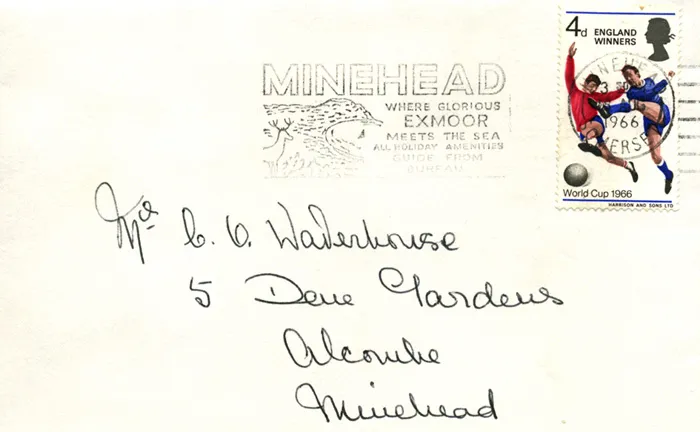 4d ENGLAND
WINNERS
World Cup 1966
HARRISON AND SONS LTD
MINEHEAD
1966
SOMERSET
MINEHEAD
WHERE GLORIOUS
EXMOOR
MEETS THE SEA
ALL HOLIDAY AMENITIES
GUIDE FROM
BUREAU
C. V. Waterhouse
5 Dene Gardens
Alcombe
Minehead